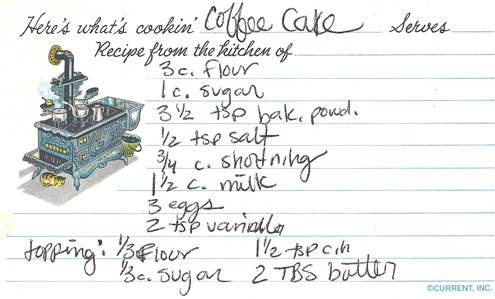 Here's what's cookin' Coffee Cake Serves
Recipe from the kitchen of
3 c. flour
1 c. sugar
3 1/2 tsp bak. powd.
1/2 tsp salt
3/4 c. shortning
1 1/2 c. milk
3 eggs
2 tsp vanilla
topping: 1/3 c flour 1 1/2 tsp cin
1/3 c. sugar 2 TBS butter
©CURRENT, INC.